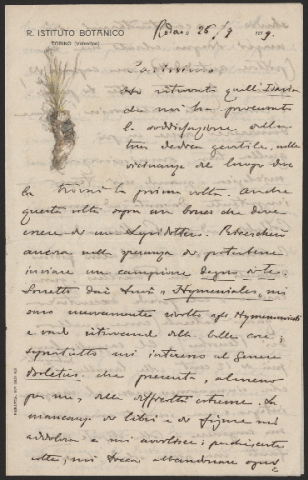 R. ISTITUTO BOTANICO
TORINO (Valentino)
26/9 909.
Carissimo
Ho ritrovato quell' Isaria
che mi ha procurato
la soddisfazione della
tua dedica gentile, nelle
vicinanze del luogo dove
la trovai la prima volta. Anche
questa volta sopra un bozzolo che deve
essere di un Lepidottero. Ricercherò
ancora nella speranza di potertene
inviare un campione degno di te.
"Hymeniales" mi
sono nuovamente rivolto agli Hymenomiceti
e vado ritrovando delle belle cose;
soprattutto mi interessa il genere
Boletus che presenta, almeno
per me, delle difficoltà estreme. La
mancanza di libri e di figure mi
addolora e mi avvilisce; parecchie
volte, mi tocca abbandonare ogni